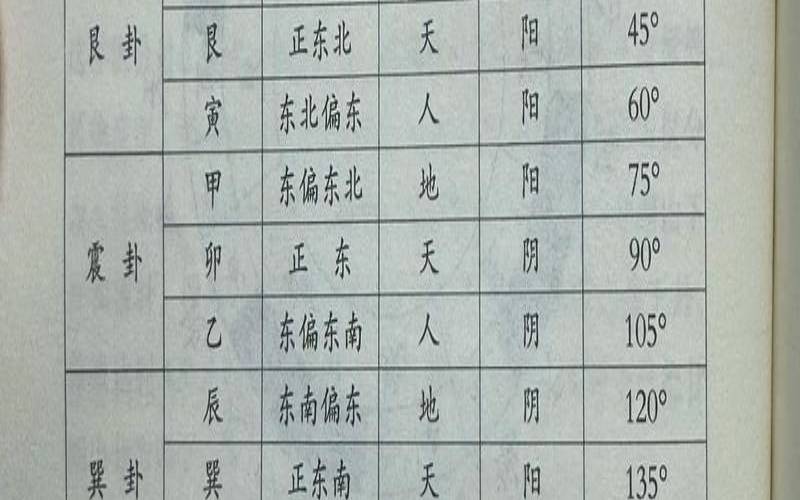 艮卦 艮 正东北 天 阳 45°
寅 东北偏东 人 阳 60°
甲 东偏东北 地 阳 75°
震卦 卯 正东 天 阴 90°
乙 东偏东南 人 阴 105°
辰 东南偏东 地 阴 120°
巽卦 巽 正东南 天 阳 135°